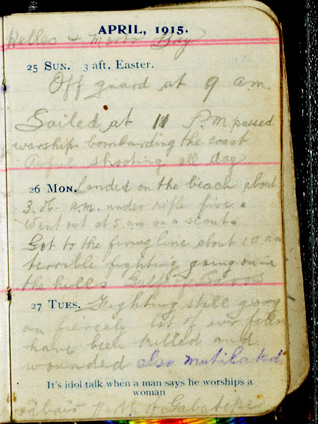 APRIL, 1915.
Helles & Morto Bay
25 SUN. 3 aft. Easter.
Off guard at 9 a.m.
Sailed at 11 P.M passed
warships bombarding the coast
shooting all day
26 MON. Landed on the beach about
3.30 a.m. under rifle fire.
Went out at 5 am on a scout.
Got to the firing line about 10 am
terrible fighting going on in
the hills
27 TUES. Fighting still going
on fiercely lot of our fellows
have been killed and
wounded also mutilated
It's idol talk when a man says he worships a
woman